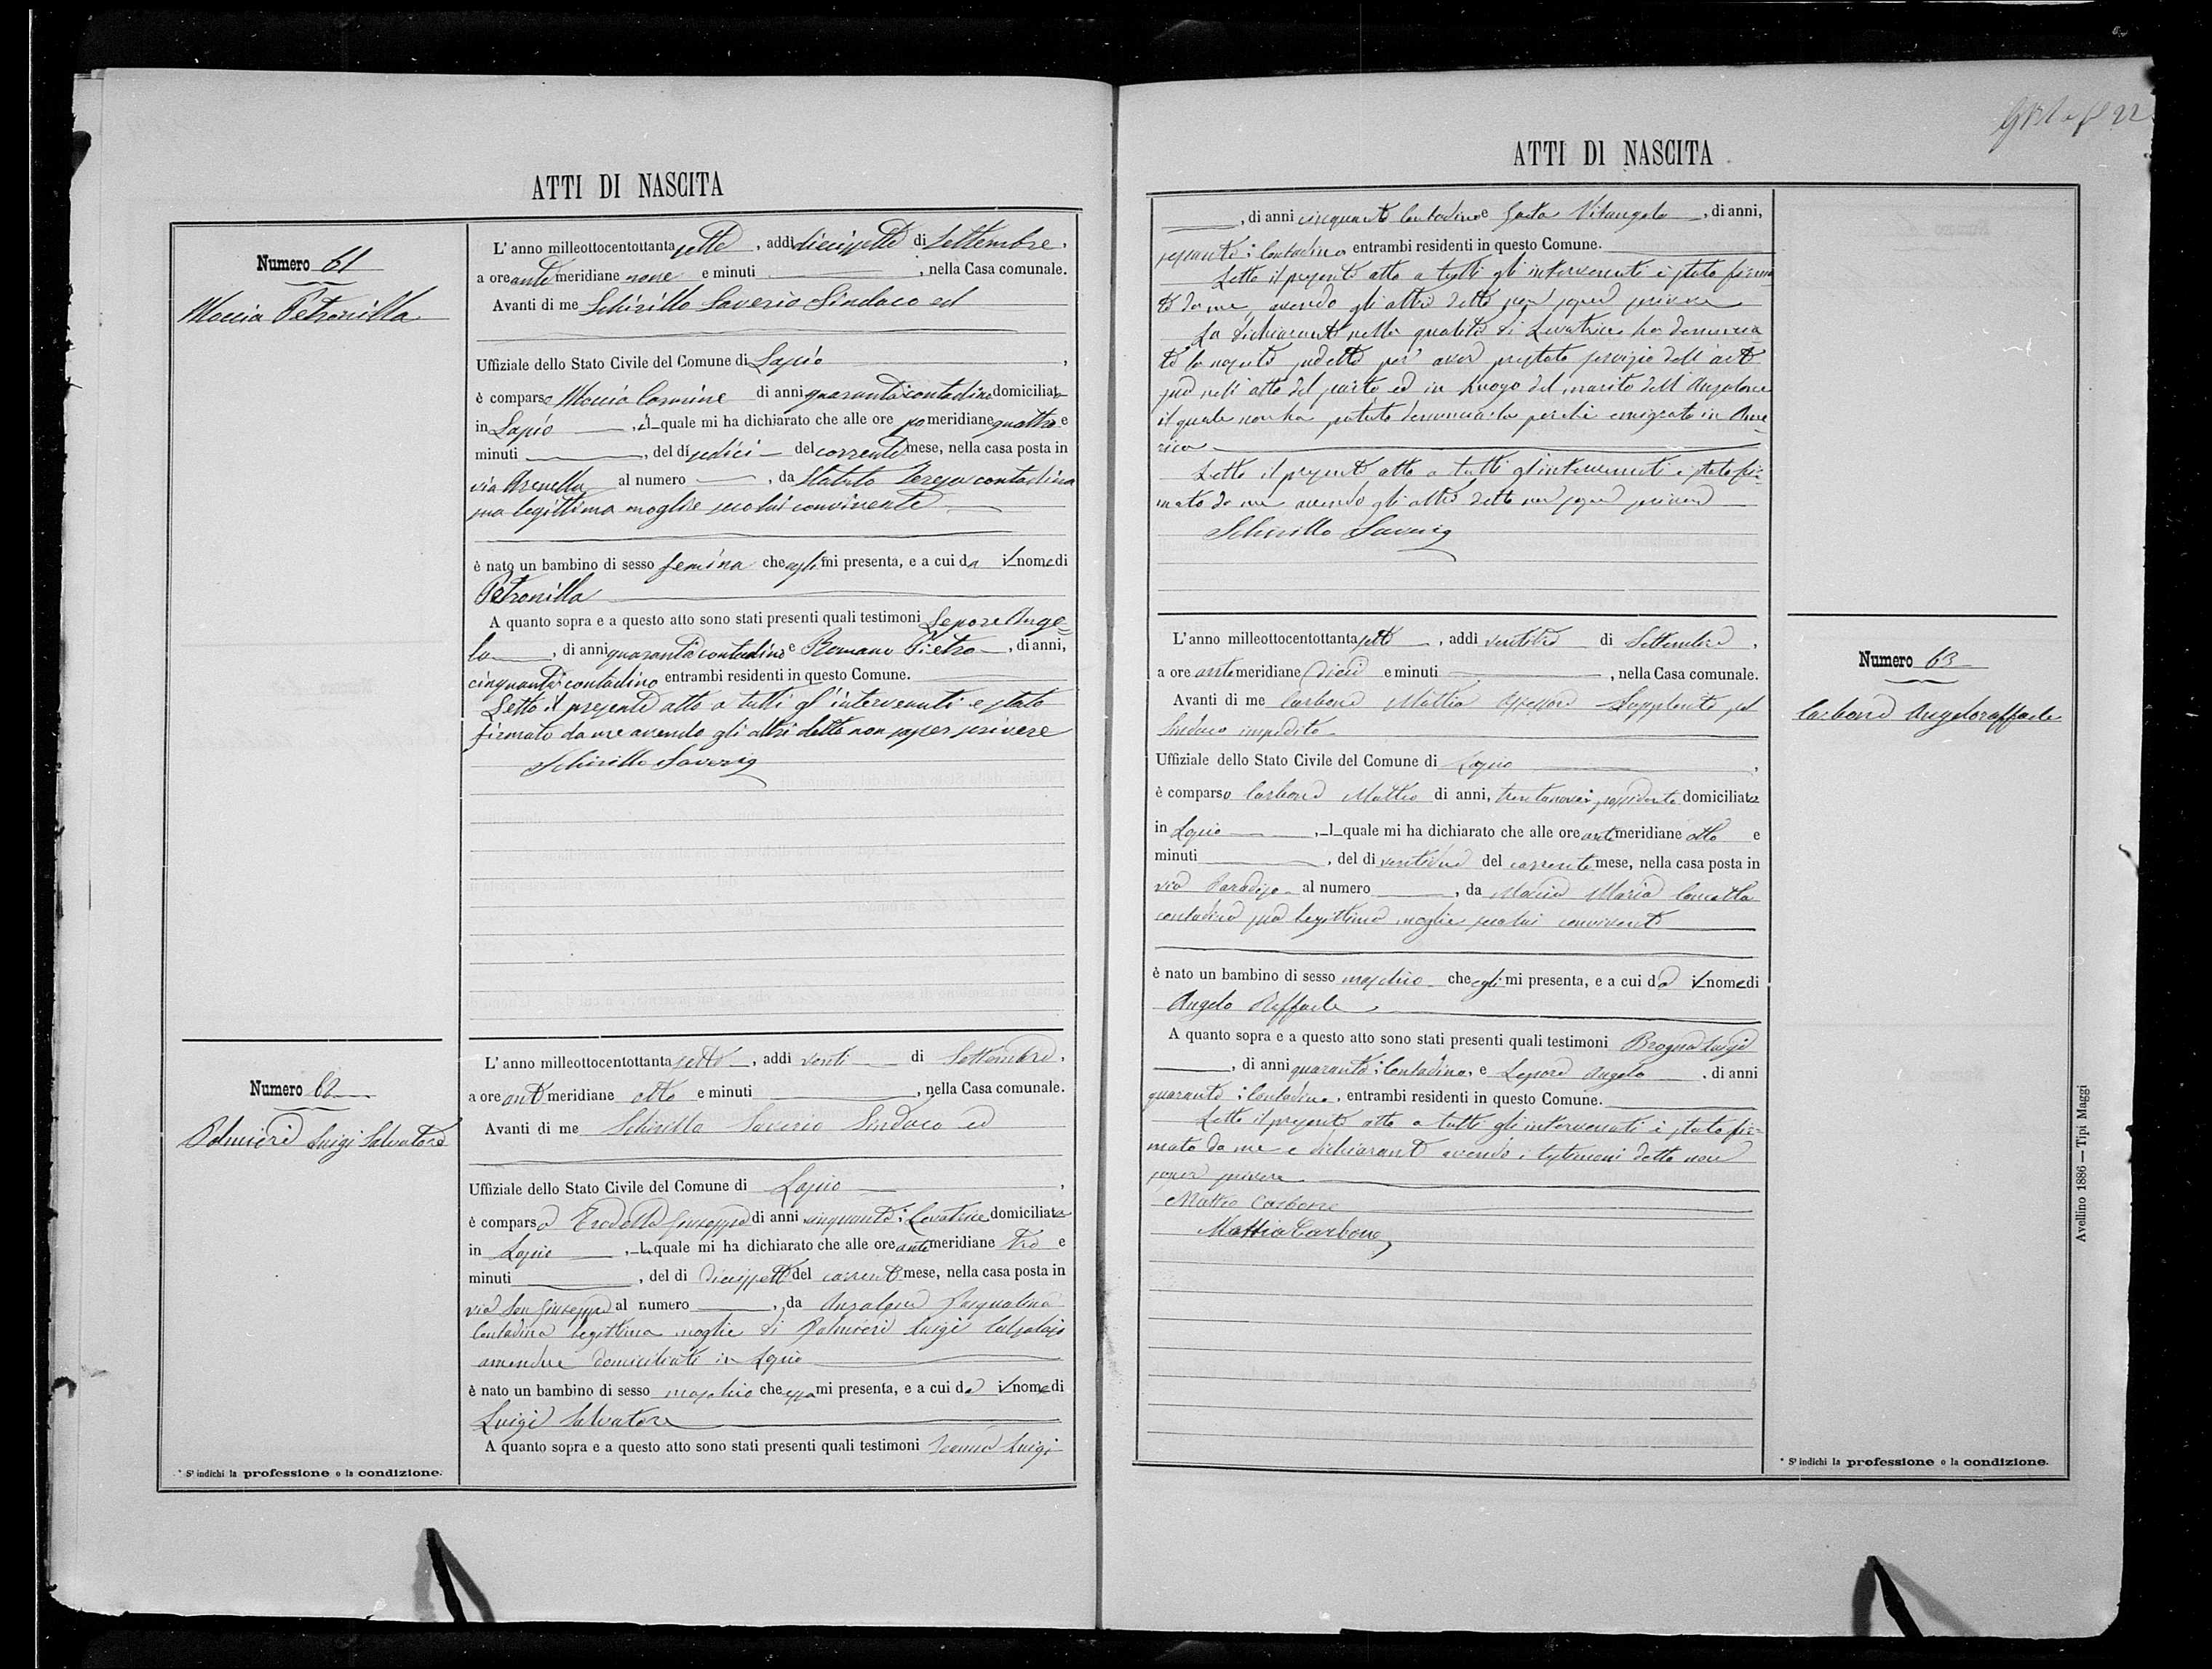 ATTI DI NASCITA
Numero 61
Moccia Petronilla
L'anno milleottocentottantasette, addì diecisette di Settembre,
a ore antemeridiane nove e minuti, nella Casa comunale.
Avanti di me Schirillo Saverio Sindaco ed
Uffiziale dello Stato Civile del Comune di Lapio,
è comparso Moccia Carmine di anni quaranta contadino domiciliato
in Lapio, il quale mi ha dichiarato che alle ore pomeridiane quattro e
minuti, del dì sedici del corrente mese, nella casa posta in
via Arenella al numero, da Statuto Teresa contadina
sua legittima moglie seco lui convivente
è nato un bambino di sesso femina che egli mi presenta, e a cui da il nome di
Petronilla
A quanto sopra e a questo atto sono stati presenti quali testimoni Lepore Ange=
lo, di anni quaranta contadino e Romano Pietro, di anni,
cinquanta contadino entrambi residenti in questo Comune.
Letto il presente atto a tutti gl'intervenuti e stato
firmato da me avendo gli altri detto non saper scrivere
Schirillo Saverio
Numero 62
Palmieri Luigi Salvatore
L'anno milleottocentottantasette, addì venti di Settembre,
a ore antemeridiane otto e minuti, nella Casa comunale.
Avanti di me Schirillo Saverio Sindaco ed
Uffiziale dello Stato Civile del Comune di Lapio,
è comparsa Giuseppa di anni cinquanta; Levatrice domiciliata
in Lapio, la quale mi ha dichiarato che alle ore antemeridiane tre e
minuti, del dì diecissette del corrente mese, nella casa posta in
via San Giuseppe al numero, da Anzalone Pasqualina
Contadina legittima moglie di Palmieri Luigi Calzolajo
amendue domiciliati in Lapio
è nato un bambino di sesso maschio che essa mi presenta, e a cui da il nome di
Luigi Salvatore
A quanto sopra e a questo atto sono stati presenti quali testimoni Luigi
* S'indichi la professione o la condizione.
ATTI DI NASCITA
, di anni cinquanta Contadino e Gaeta Vitangelo, di anni,
sessanta; Contadino entrambi residenti in questo Comune.
Letto il presente atto a tutti gli intervenuti è stato firma
to da me, avendo gli altri detto non saper scrivere
La dichiarante nella qualità di Levatrice ha denuncia
to la nascita sudetta per aver prestato servizio dell'arte
sua nell'atto del parto ed in luogo del marito dell'Anzalone
il quale non ha potuto denunciarla perchè emigrato in Ame
rica
Letto il presente atto a tutti gl'intervenuti è stato fir=
mato da me avendo gli altri detto non saper scrivere
Schirillo Saverio
Numero 63
Carbone Angeloraffaele
L'anno milleottocentottantasette, addì ventitre di Settembre,
a ore antemeridiane dieci e minuti, nella Casa comunale.
Avanti di me Carbone Mattia Assessore Supplente pel
Sindaco impedito
Uffiziale dello Stato Civile del Comune di Lapio,
è comparso Carbone Matteo di anni, trentanove; possidente domiciliato
in Lapio, il quale mi ha dichiarato che alle ore antemeridiane otto e
minuti, del dì ventidue del corrente mese, nella casa posta in
via Paradiso al numero, da Moccia Maria Concetta
contadina sua legittima moglie seco lui convivente
è nato un bambino di sesso maschio che egli mi presenta, e a cui da il nome di
Angelo Raffaele
A quanto sopra e a questo atto sono stati presenti quali testimoni Brogna Luigi
, di anni quaranta; Contadino, e Lepore Angelo, di anni
quaranta; Contadino, entrambi residenti in questo Comune.
Letto il presente atto a tutti gli intervenuti è stato fir=
mato da me e dichiarante avendo i testimoni detto non
saper scrivere
Matteo Carbone
Mattia Carbone
* S'indichi la professione o la condizione.
Avellino 1886 — Tipi Maggi